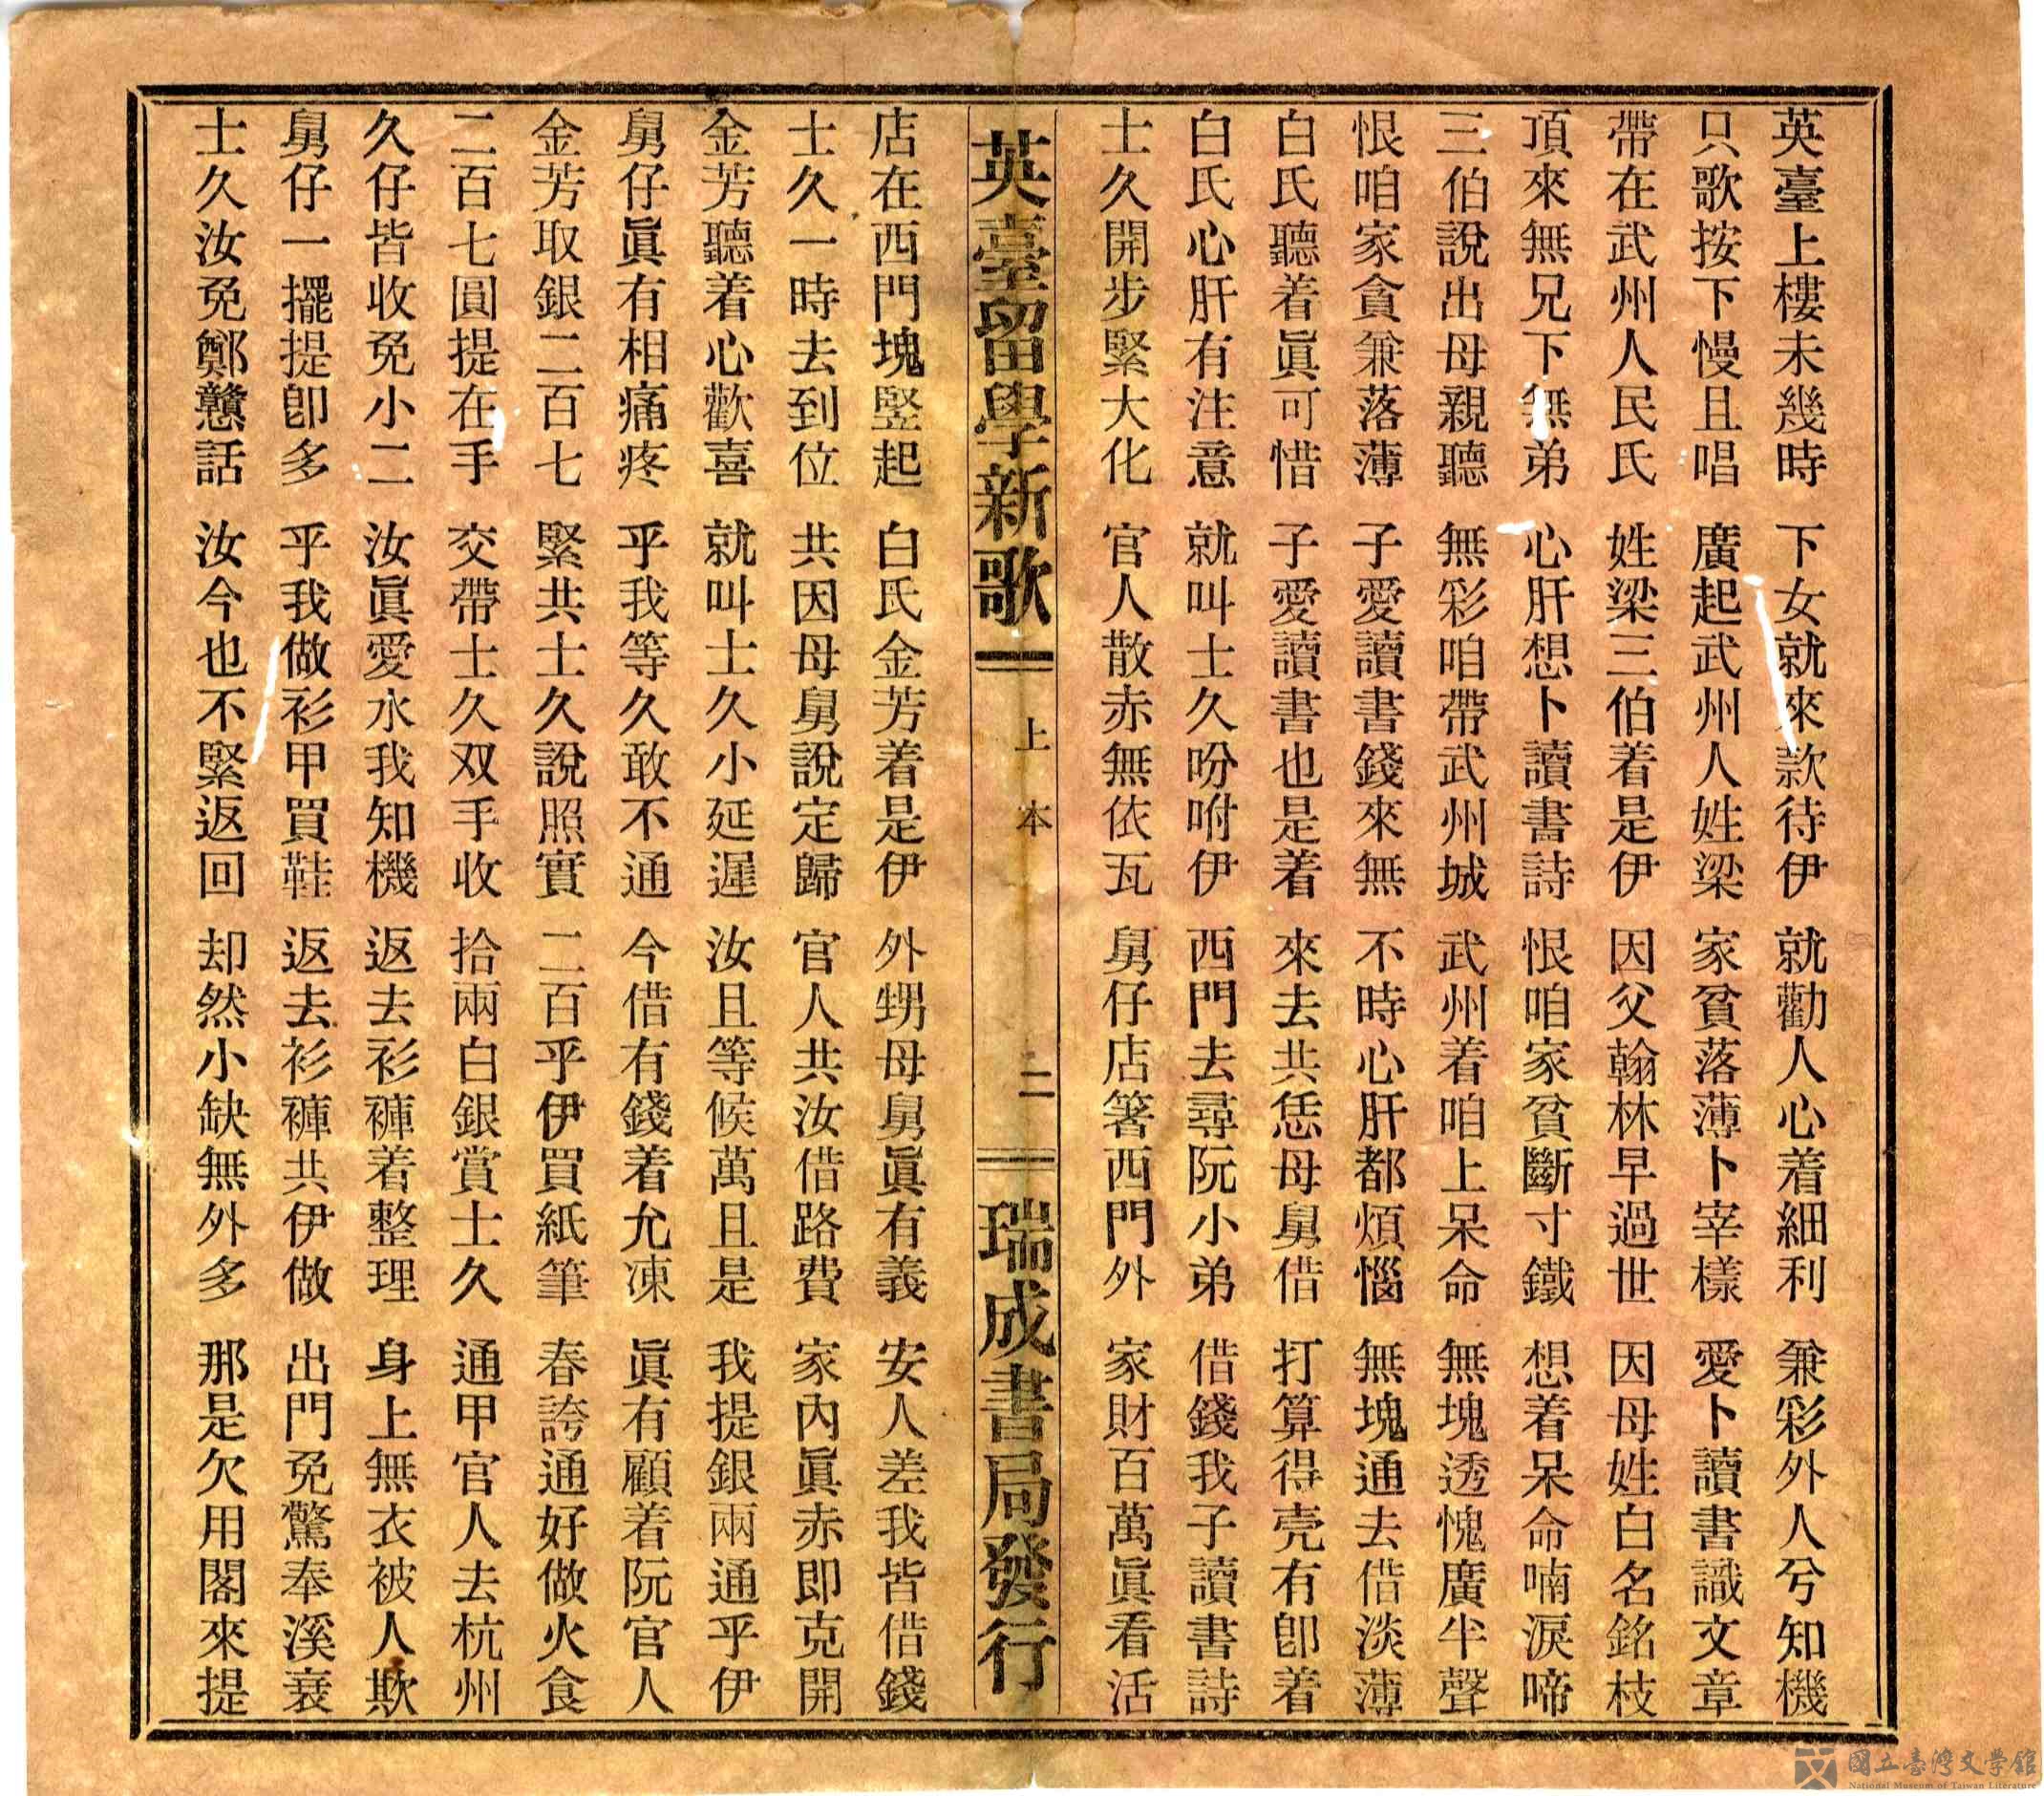 英臺上樓未幾時 下女就來款待伊 就勸人心着細利 兼彩外人兮知機
只歌按下慢且唱 廣起武州人姓梁 家貧落薄卜宰樣 愛卜讀書識文章
帶在武州人民氏 姓梁三伯着是伊 因父翰林早過世 因母姓白名銘枝
頂來無兄下無弟 心肝想卜讀書詩 恨咱家貧斷寸鐵 想着呆命喃淚啼
三伯說出母親聽 無彩咱帶武州城 武州着咱上呆命 無塊透愧廣半聲
恨咱家貪兼落薄 子愛讀書錢來無 不時心肝都煩惱 無塊通去借淡薄
白氏聽着眞可惜 子愛讀書也是着 來去共恁母舅借 打算得壳有卽着
白氏心肝有注意 就叫士久吩咐伊 西門去尋阮小弟 借錢我子讀書詩
士久開步緊大化 官人散赤無依瓦 舅仔店箸西門外 家財百萬眞看活
英臺留學新歌 上本 二 瑞成書局發行
店在西門塊竪起 白氏金芳着是伊 外甥母舅眞有義 安人差我皆借錢
士久一時去到位 共因母舅說定歸 官人共汝借路費 家內眞赤即克開
金芳聽着心歡喜 就叫士久小延遲 汝且等候萬且是 我提銀兩通乎伊
舅仔眞有相痛疼 乎我等久敢不通 今借有錢着允凍 眞有顧着阮官人
金芳取銀二百七 緊共士久說照實 二百乎伊買紙筆 春誇通好做火食
二百七圓提在手 交帶士久双手收 拾兩白銀賞士久 通甲官人去杭州
久仔皆收免小二 汝眞愛水我知機 返去衫褲着整理 身上無衣被人欺
舅仔一擺提卽多 乎我做衫甲買鞋 返去衫褲共伊做 出門免驚奉溪衰
士久汝免鄭戇話 汝今也不緊返回 却然小缺無外多 那是欠用閣來提
國立臺灣文學館
National Museum of Taiwan Literature